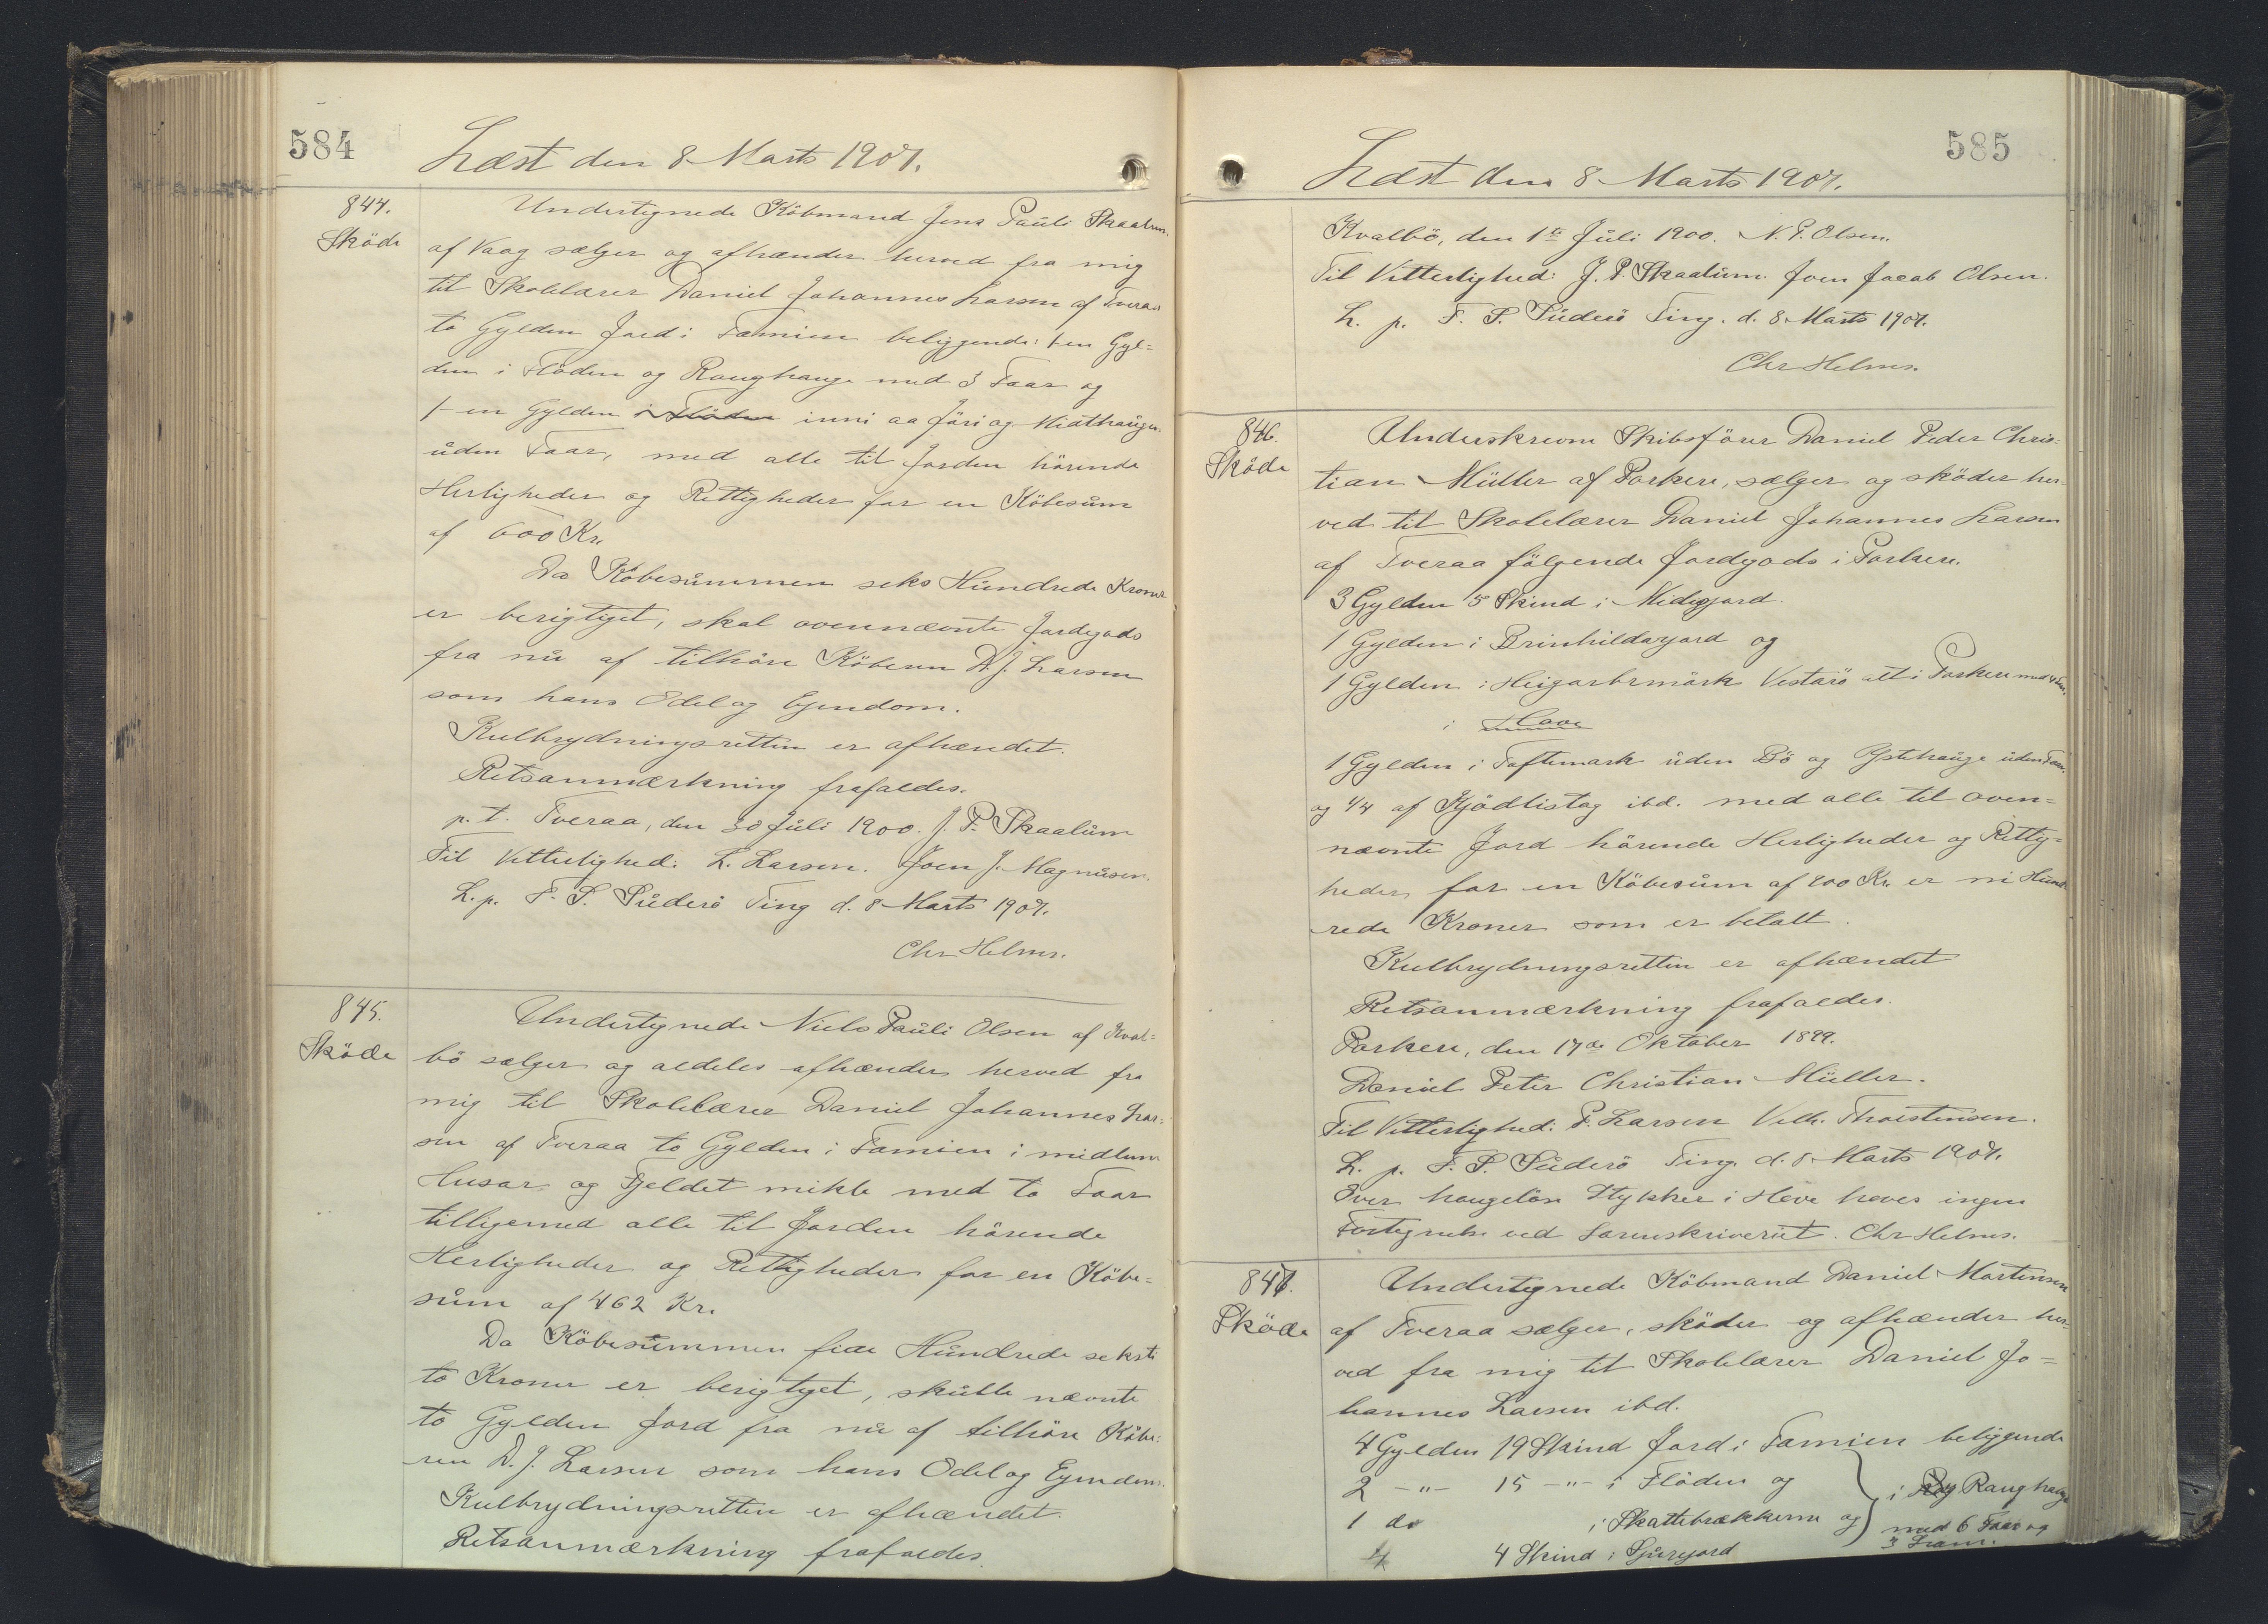 584
Læst den 8 Marts 1907.
844.
Sköde
Undertegnede Köbmand Jens Pauli Skaalum
af Vaag sælger og afhænder herved fra mig
til Skolelærer Daniel Johannes Larsen af Tveraa
to Gylden Jord i Famien beliggende: 1 en Gyl=
den i Flöden og Rough­auge med 3 Faar og
1 en Gylden i Flöden inni aa Jöri og Midthaugen
uden Faar, med alle til Jorden hörende
Herligheder og Rettigheder for en Köbesum
af 600 Kr.
Da Köbesummen seks Hundrede Kroner
er berigtiget, skal ovennævnte Jordegods
fra nu af tilhöre Köberen D. J. Larsen
som hans Odel og Ejendom.
Kulbrydningsretten er afhændet.
Retsanmærkning frafaldes.
p. t. Tveraa, den 30 Juli 1900. J. P. Skaalum
Til Vitterlighed: L. Larsen. Joen J. Magnusen.
L. p. F. S. Suderö Ting d. 8 Marts 1907.
Chr Helms.
845.
Sköde
Undertegnede Niels Pauli Olsen af Kval=
bö sælger og aldeles afhænder herved fra
mig til Skolelærer Daniel Johannes Lar=
sen af Tveraa to Gylden i Famien i midlum
Husar og Fjeldet mikle med to Faar
tilligemed alle til Jorden hörende
Herligheder og Rettigheder for en Köbe=
sum af 462 Kr.
Da Köbesummen fire Hundrede seksti
to Kroner er berigtiget, skulle nævnte
to Gylden Jord fra nu af tilhöre Köbe=
ren D. J. Larsen som hans Odel og Ejendom.
Kulbrydningsretten er afhændet.
Retsanmærkning frafaldes.
585
Læst den 8 Marts 1907.
Kvalbö, den 1te Juli 1900. N. P. Olsen.
Til Vitterlighed: J. P. Skaalum. Joen Jacob Olsen.
L. p. F. S. Suderö Ting. d. 8 Marts 1907.
Chr Helms.
846.
Sköde
Underskrevne Skibsförer Daniel Peder Chris=
tian Müller af Porkere, sælger og sköder her=
ved til Skolelærer Daniel Johannes Larsen
af Tveraa fölgende Jordegods i Porkere.
3 Gylden 5 Skind i Midgjard
1 Gylden i Brinhildargard og
1 Gylden i Heigarbrmörk Vestarö alt i Porkere med 4
i Hove
1 Gylden i Toftemark uden Bö og Ystehauge uden Faar.
og 1/4 af Kjödlistog ibd. med alle til oven=
nævnte Jord hörende Herligheder og Rettig=
heder for en Köbesum af 900 Kr. er ni Hund
rede Kroner som er betalt.
Kulbrydningsretten er afhændet
Retsanmærkning frafaldes.
Porkere, den 17de Oktober 1899.
Daniel Peter Christian Müller.
Til Vitterlighed: P. Larsen Vilh. Thorsteinsen.
L. p. F. S. Suderö Ting. d. 8 Marts 1907.
Over haugelöse Stykker i Hove haves ingen
Fortegnelse ved Sorenskriveriet. Chr Helms.
847.
Sköde
Undertegnede Köbmand Daniel Mortensen
af Tveraa sælger, sköder og afhænder her=
ved fra mig til Skolelærer Daniel Jo=
hannes Larsen ibd.
4 Gylden 19 Skind Jord i Famien beliggende
2 -"- 15 -"- i Flöden og
1 do i Skattebrækkerne og
4 Skind i Sjurgard
i Raughauge
med 6 Faar og
3 Lam.